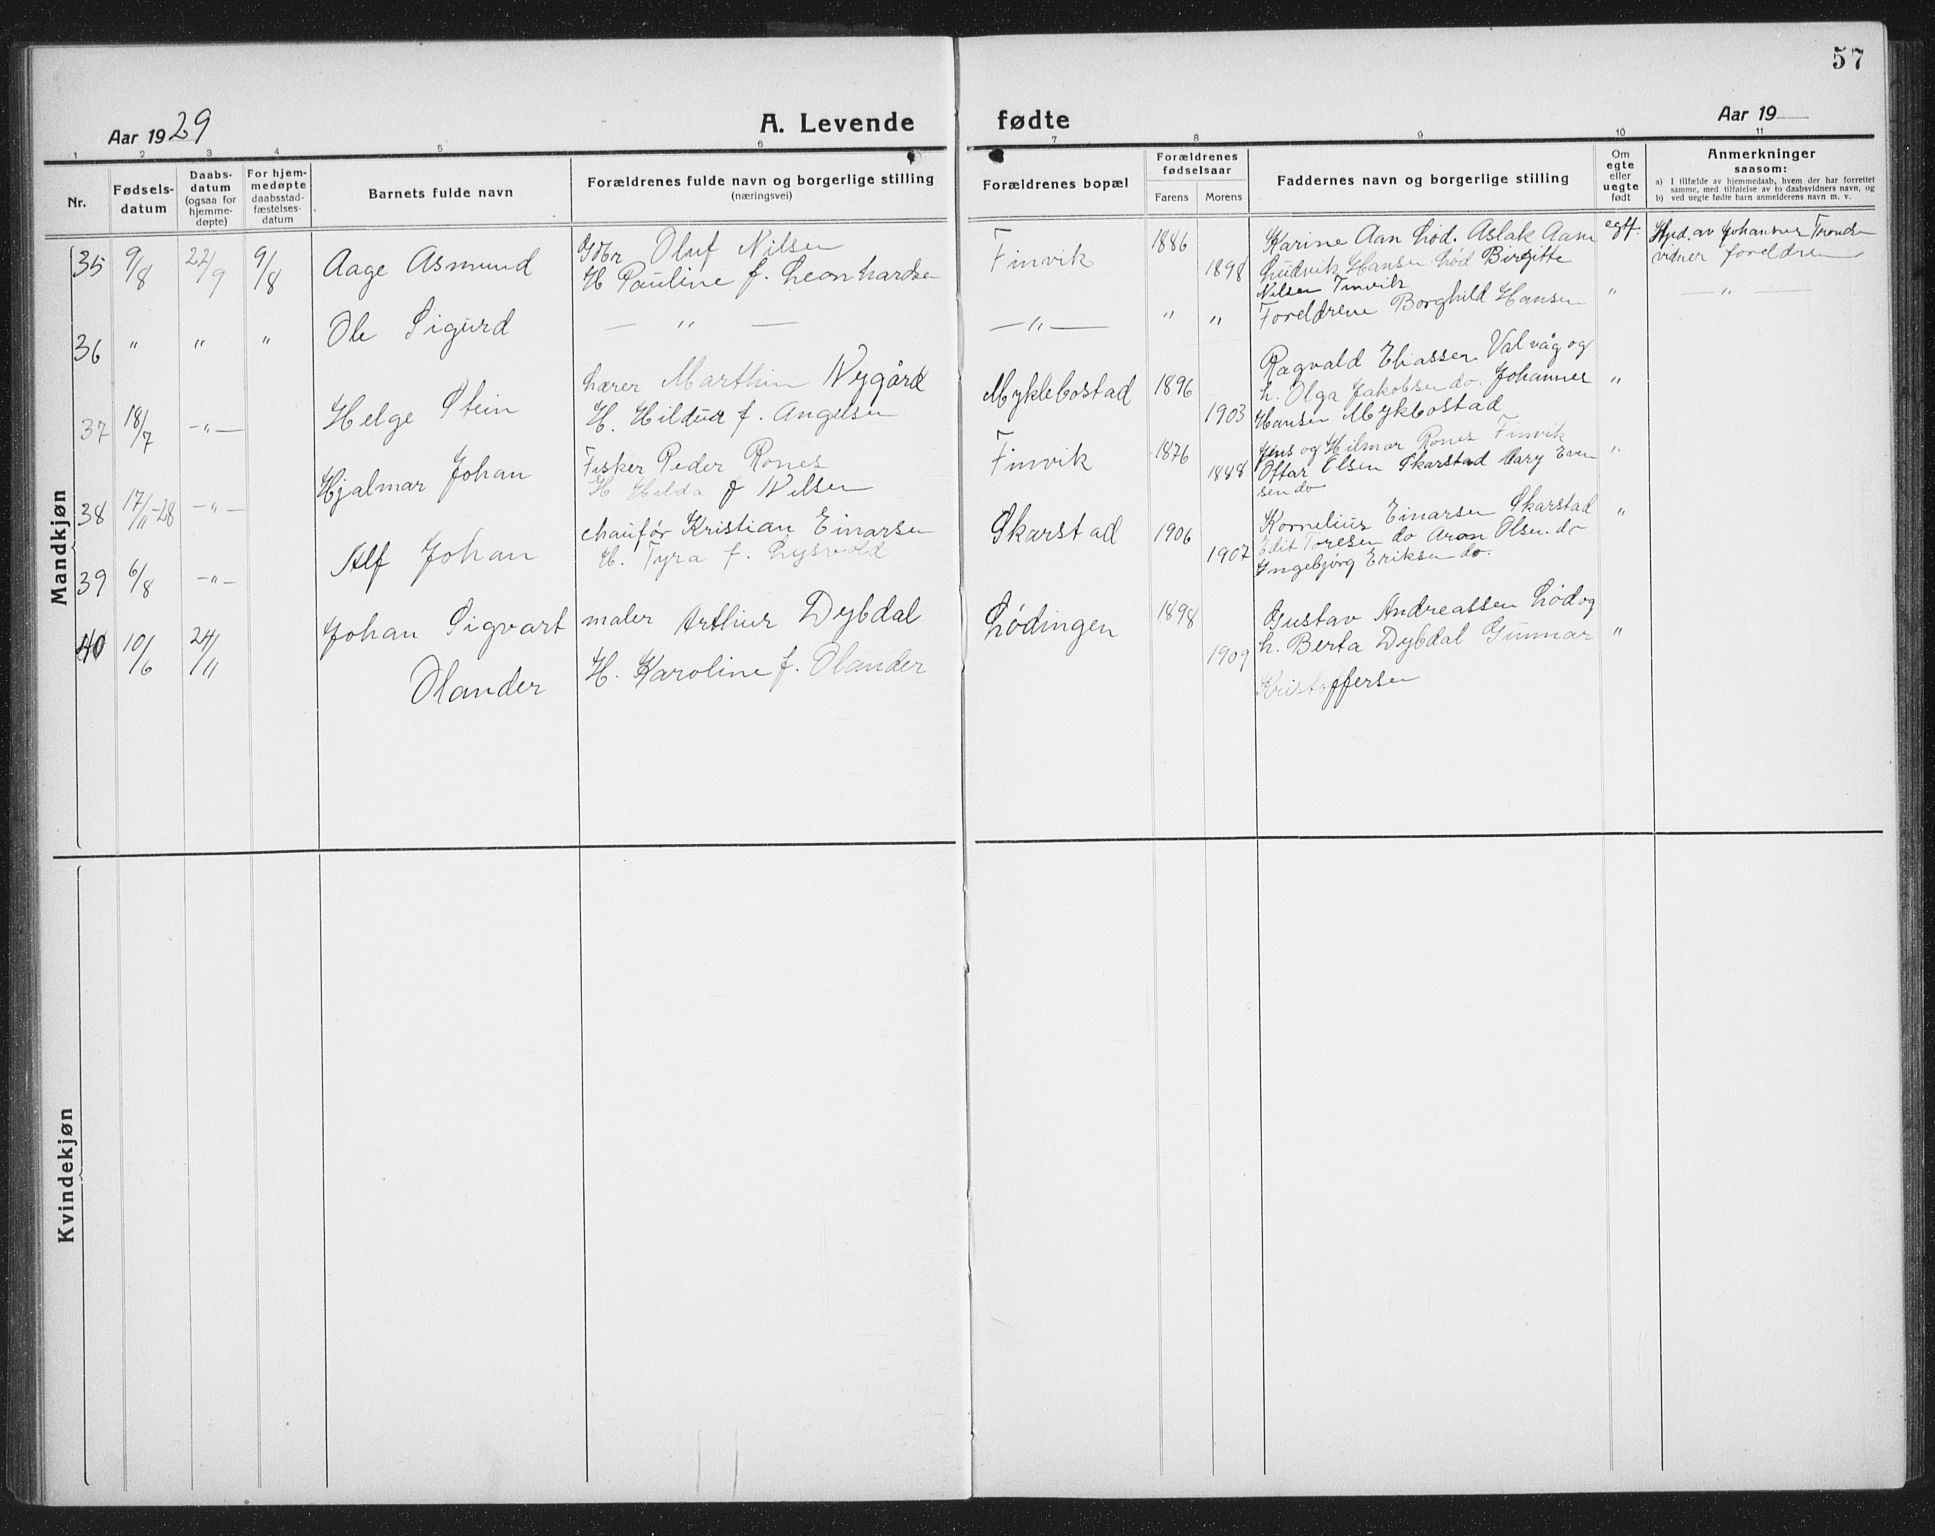 57
Aar 1929
A. Levende fødte
Aar 19
1 2 3 4 5 6 7 8 9 10 11
Nr.
Fødsels-
datum
Daabs-
datum
(ogsaa for
hjemme-
døpte)
For hjem-
medøpte
daabsstad-
fæstelses-
datum
Barnets fulde navn
Forældrenes fulde navn og borgerlige stilling
(næringsvei)
Forældrenes bopæl
Forældrenes
fødselsaar
Farens Morens
Faddernes navn og borgerlige stilling
Om
egte
eller
uegte
født
Anmerkninger
saasom:
a) I tilfælde av hjemmedaab, hvem der har forrettet
samme, med tilføielse av to daabsvidners navn, og
b) ved uegte fødte barn anmelderens navn m. v.
Mandkjøn
35 9/8 22/9 9/8 Aage Asmund
Gdbr Oluf Nilsen
H Pauline f. Leonhardsen
Finvik 1886 1898
Karine Aan Lød. Aslak Aan
Ludvik Hansen Lød Birgitte
Nilsen Finvik
egt. Hjd. av Johannes Trondsen
vidner foreldrene
36 " " " Ole Sigurd
— " —
— " — " "
Foreldrene Borghild Hansen
" — " —
37 18/7 — " — Helge Stein
Lærer Marthin Nygård
H. Hildur f. Angelsen
Myklebostad 1896 1903
Ragvald Eliassen Valvåg og
h. Olga Jakobsen do. Johannes
Hansen Myklbostad
"
38 17/11-28 — " — Hjalmar Johan
Fisker Peder Rones
H Hilda f Nilsen
Finvik 1876 1888
Jens og Hilmar Rones Finvik
Oftar Olsen Skarstad Mary Even
sen do
"
39 6/8 — " — Alf Johan
chaufør Kristian Einarsen
H. Tyra f. Lysvold
Skarstad 1906 1907
Kornelius Einarsen Skarstad
Edit Toresen do Aron Olsen do
Ingebjørg Eriksen do.
"
40 10/6 24/11 Johan Sigvart
Olander
maler Arthur Dybdal
H. Karoline f. Olander
Lødingen 1898 1909
Gustav Andreassen Lød og
h. Berta Dybdal Gunnar
Kristoffersen
"
Kvindekjøn